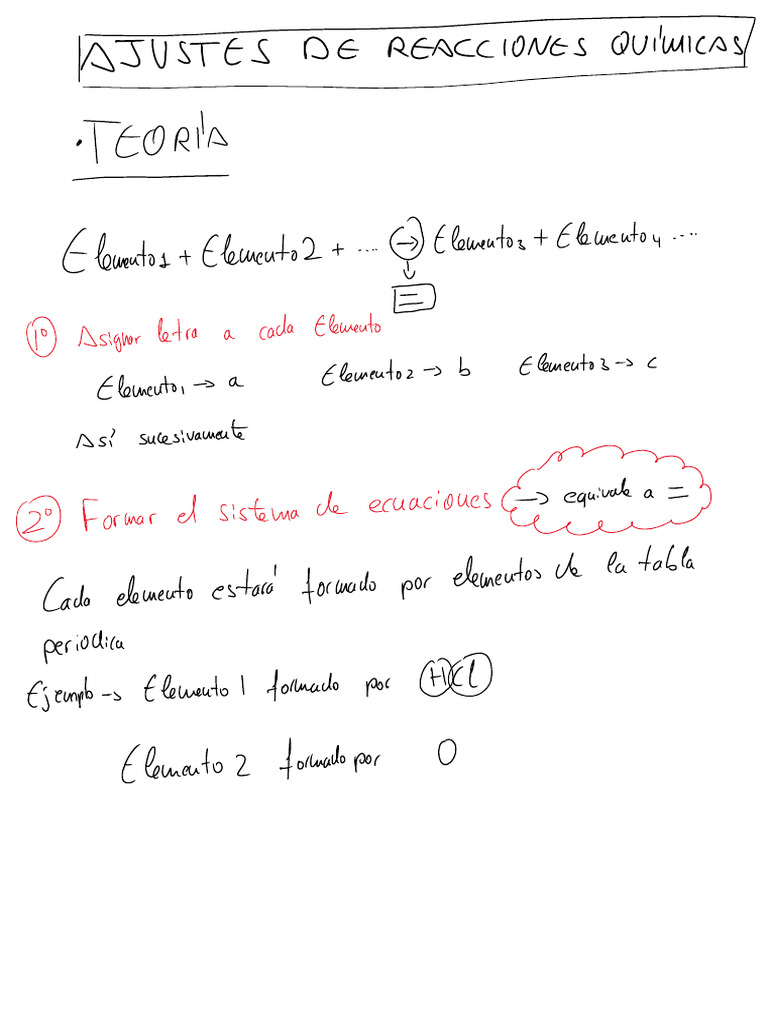 AJUSTES DE REACCIONES QUÍMICAS
· TEORÍA
Elemento1 + Elemento2 + .... → Elemento3 + Elemento4 ....
=
1º Asignar letra a cada Elemento
Elemento1 → a Elemento2 → b Elemento3 → c
Así sucesivamente
2º Formar el sistema de ecuaciones → equivale a =
Cada elemento estará formado por elementos de la tabla
periodica
Ejemplo → Elemento 1 formado por HCl
Elemento 2 formado por O